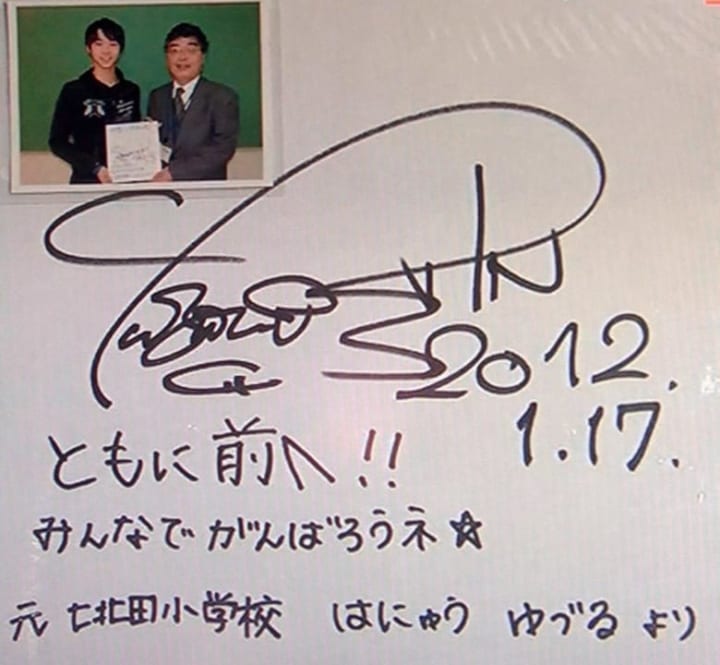 2012.
1.17.
ともに前へ!!
みんなでがんばろうネ☆
元 七北田小学校 はにゅう ゆづる より